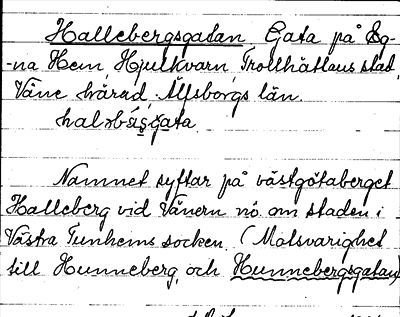 Hallebergsgatan Gata på Eg-
-na Hem, Hjulkvarn, Trollhättans stad,
Väne härad, Älfsborgs län.
Namnet syftar på västgötaberget
Halleberg vid Vänern nö. om staden i
Västra Tunhems socken. (Motsvarighet
till Hunneberg och Hunnebergsgatan)